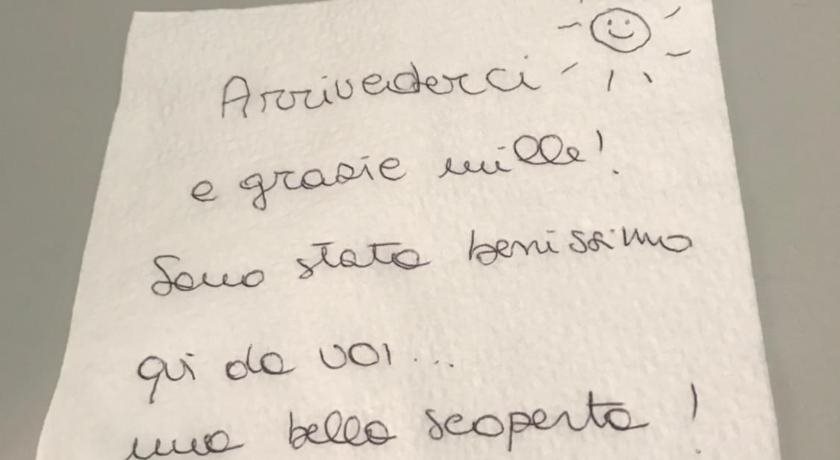 Arrivederci
e grazie mille!
Sono stata benissimo
qui da voi...
una bella scoperta!